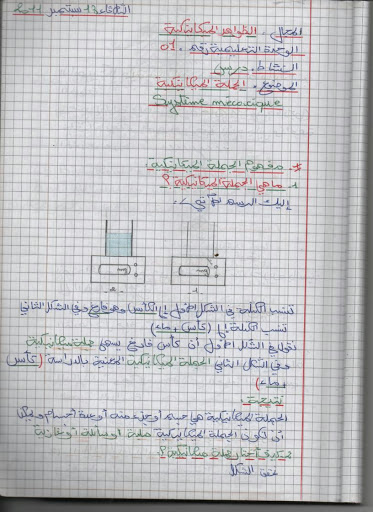 الثلاثاء 13 سبتمبر 2011
المجال: الظواهر الميكانيكية
الوحدة التعليمية رقم: 01
النشاط: درس
الموضوع: الجملة الميكانيكية
Système mécanique
* مفهوم الجملة الميكانيكية:
1 ما هي الجملة الميكانيكية؟
إليك الرسم الآتي:
- 2 - - 1 -
تنسب الكتلة في الشكل الأول إلى (الكأس) وهو فارغ وفي الشكل الثاني
تنسب الكتلة إلى (كأس + ماء)
نقول في الشكل الأول أن كأس فارغ يسمى جملة ميكانيكية
وفي الشكل الثاني الجملة الميكانيكية المعنية بالدراسة (كأس
+ ماء)
نتيجة:
الجملة الميكانيكية هي جسم أو جزء منه أو عدة أجسام و
أن تكون الجملة الميكانيكية صلبة أو سائلة أو غازية
كيف أختار جملة ميكانيكية؟
الشكل